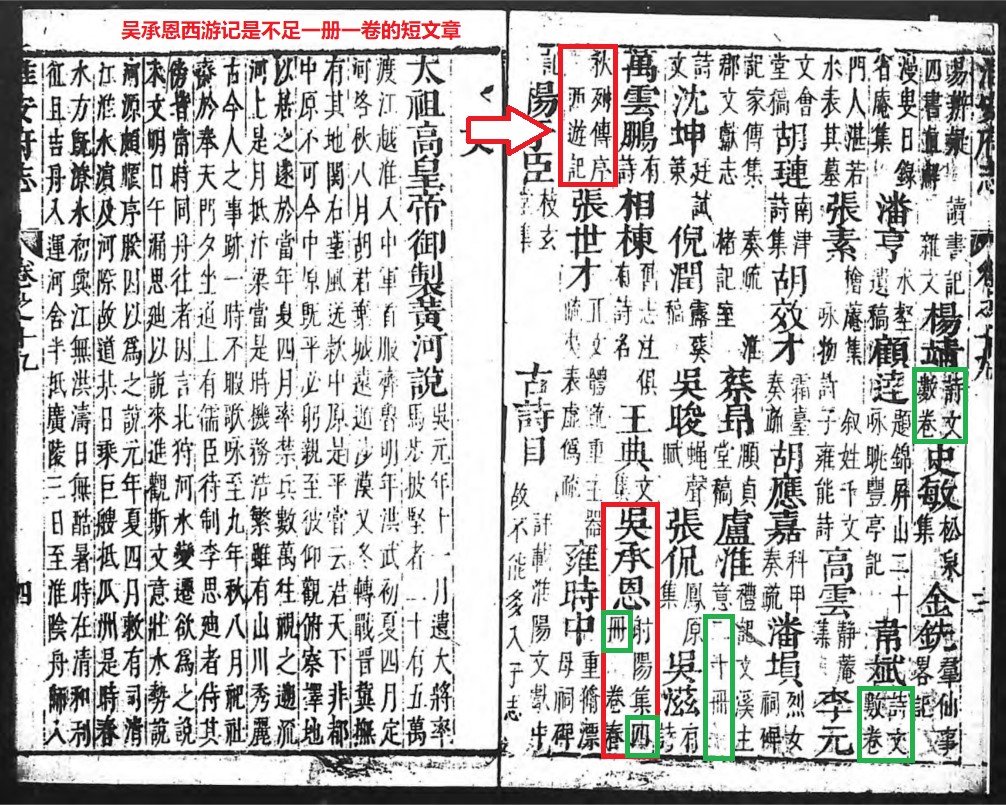 吴承恩西游记是不足一册一卷的短文章
四書直解 讀書記 雜文 楊靖 詩文數卷 史敏 松泉集 金銑 羣仙事畧記
漫叟日錄 省庵集 潘亨 水壑遺稿 顧逵 題錦屏山二十咏 眺豐亭記 常斌 詩文數卷
門人湛若水表其墓 張素 檜菴集 咏物詩 叙姓千文 子雍能詩 高雲 靜菴集 李元
文會堂稿 胡璉 南津詩集 奏疏 胡效才 霜臺奏疏 胡應嘉 科甲奏疏 潘塤 烈女祠碑
記 家傳集 郡文獻志 楮記室 淮 蔡昂 頤貞堂稿 盧淮 禮記文溪主意二十冊
詩文 沈坤 廷試策 倪潤 稿 吳晙 蠅聲賦 張侃 鳳原集 吳滋 有詩
萬雲鵬 有詩 相棟 舊志注俱有詩名 王典 文集 吳承恩 射陽集四冊 卷 春
秋列傳序 西遊記 張世才 雍時中 重脩漂母祠碑
記 古詩目 詩載淮陽文獻中 故不能多入予志
文
太祖高皇帝御製黃河說 吳元年十一月遣大將率馬步披堅者二十有五萬
渡江越淮入中軍首服齊魯明年洪武初夏四月定
河洛秋八月胡君棄城遠遁沙漠又冬轉戰晉冀撫
有其地關右望風送款中原是平嘗云君天下非都
中原不可今中原既平必躬親至彼仰觀俯察擇地
以居之遂於當年夏四月率禁兵數萬往視之遡流
河上是月抵汴梁當是時機務浩繁雖有山川秀麗
古今人之事跡一時不暇歌咏至九年秋八月祀祖
齋於奉天門夕坐道上有儒臣待制李思廸者侍其
傍嘗當時同舟往者因言北狩河水變遷欲為之說
未文明日午朝思廸以說來進觀斯文意壯水勢說
河源頗順序朕因以為之說元年夏四月敕有司清
江淮水濵及河隂故道某日乘巨艘抵瓜州是時春
水方既潦水初興江無洪濤日無酷暑時在清和利
征且吉舟入運河舍半抵廣陵三日至淮陰舟師入
淮安府志 卷之十九 四